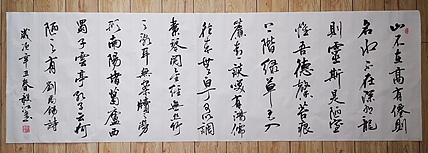 山不在高有僊則
名水不在深有龍
則靈斯是陋室
惟吾德馨苔痕
上階緑草色入
簾青談咲有鴻儒
往來無白丁可以調
素琴閱金經無絲竹
之亂耳無案牘之勞
形南陽諸葛廬西
蜀子雲亭孔子云何
陋之有 劉禹錫詩
歲次辛丑春